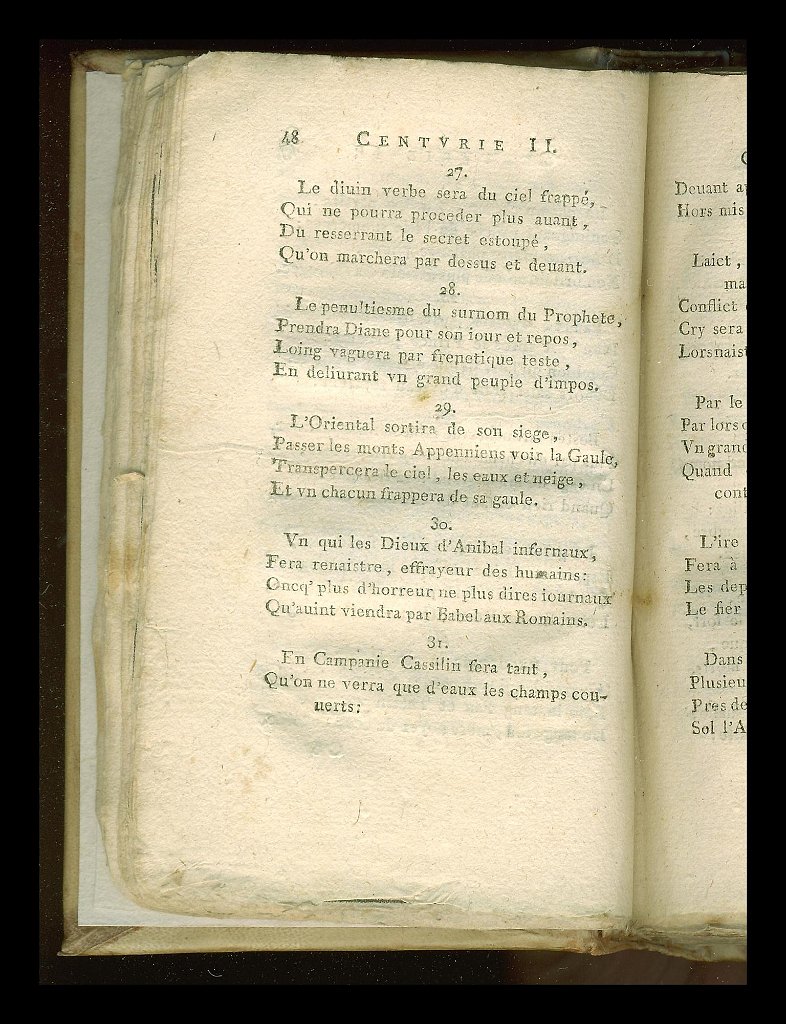 48 CENTVRIE II.
27.
Le diuin verbe sera du ciel frappé,
Qui ne pourra proceder plus auant,
Du resserrant le secret estoupé,
Qu'on marchera par dessus et deuant.
28.
Le penultiesme du surnom du Prophete,
Prendra Diane pour son iour et repos,
Loing vaguera par frenetique teste,
En deliurant vn grand peuple d'impos.
29.
L'Oriental sortira de son siege,
Passer les monts Appenniens voir la Gaule,
Transpercera le ciel, les eaux et neige,
Et vn chacun frappera de sa gaule.
30.
Vn qui les Dieux d'Anibal infernaux,
Fera renaistre, effrayeur des humains:
Oncq' plus d'horreur ne plus dires iournaux
Qu'auint viendra par Babel aux Romains.
31.
En Campanie Cassilin fera tant,
Qu'on ne verra que d'eaux les champs cou-
uerts:
Deuant
Hors mis
Laict,
Conflict
Cry sera
Par le
Par lors
Vn grand
Quand
L'ire
Fera à
Les
Le fier
Dans
Pres de
Sol